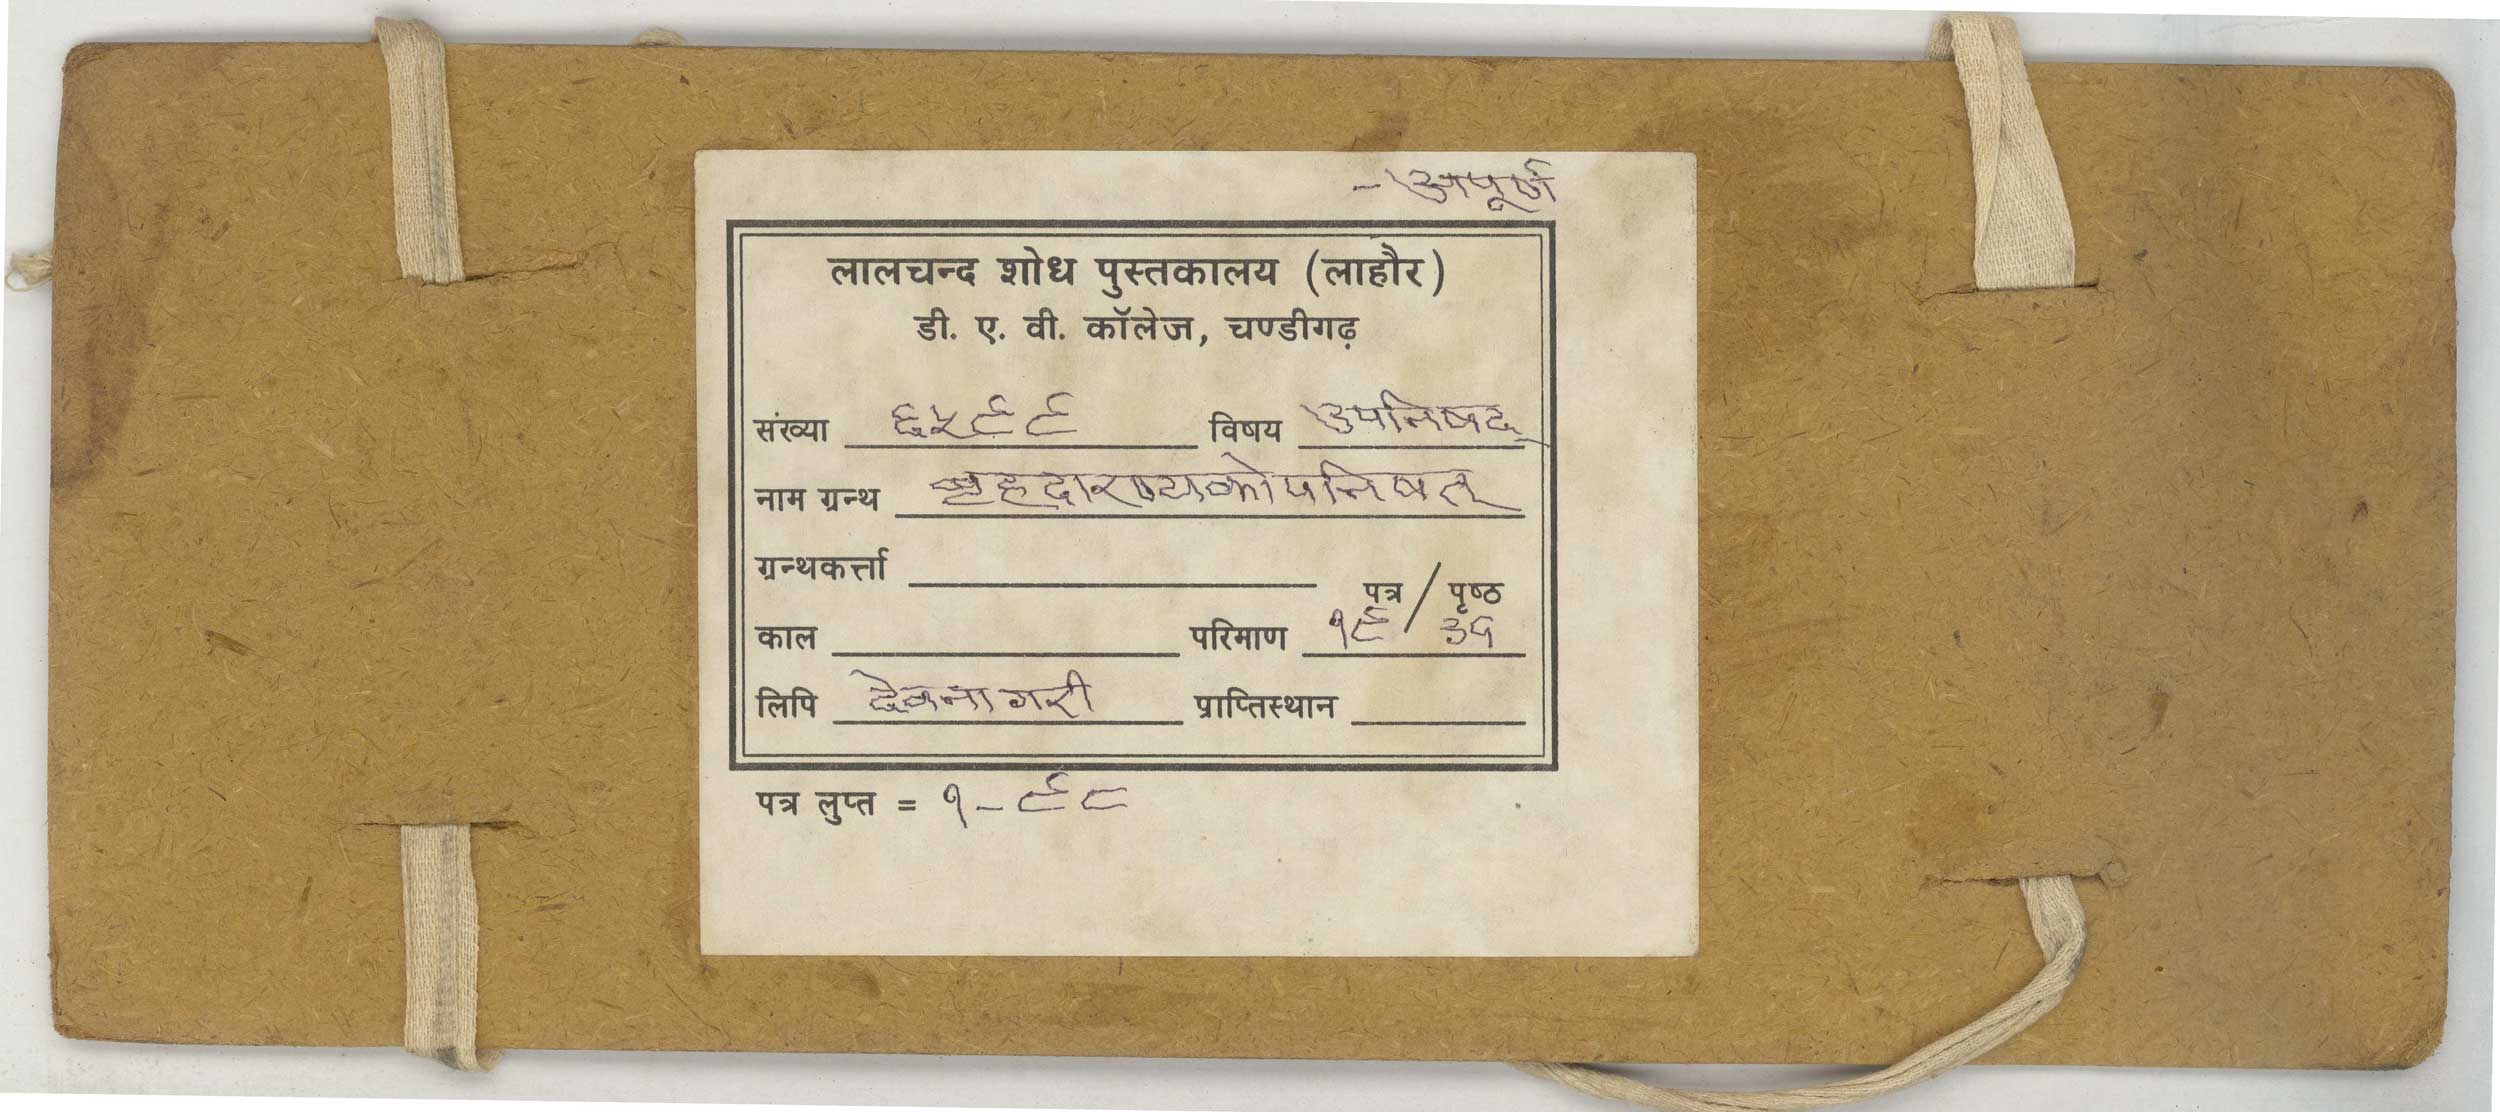 - अपूर्ण
लालचन्द शोध पुस्तकालय (लाहौर)
डी. ए. वी. कॉलेज, चण्डीगढ़
संख्या ६५९९ विषय उपनिषद्
नाम ग्रन्थ बृहदारण्यकोपनिषत्
ग्रन्थकर्त्ता
पत्र / पृष्ठ
काल परिमाण १९ / ३६
लिपि देवनागरी प्राप्तिस्थान
पत्र लुप्त = १-९८